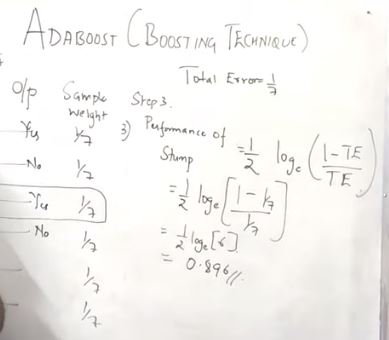 ADABOOST (BOOSTING TECHNIQUE)
Total Error=1/7
O/p Sample Weight Step3.
Yes 1/7
No 1/7
Yes 1/7
No 1/7
1/7
1/7
3) Performance of Stump = 1/2 loge (1-TE/TE)
= 1/2 loge [1-1/7 / 1/7]
= 1/2 loge [6]
= 0.896//.